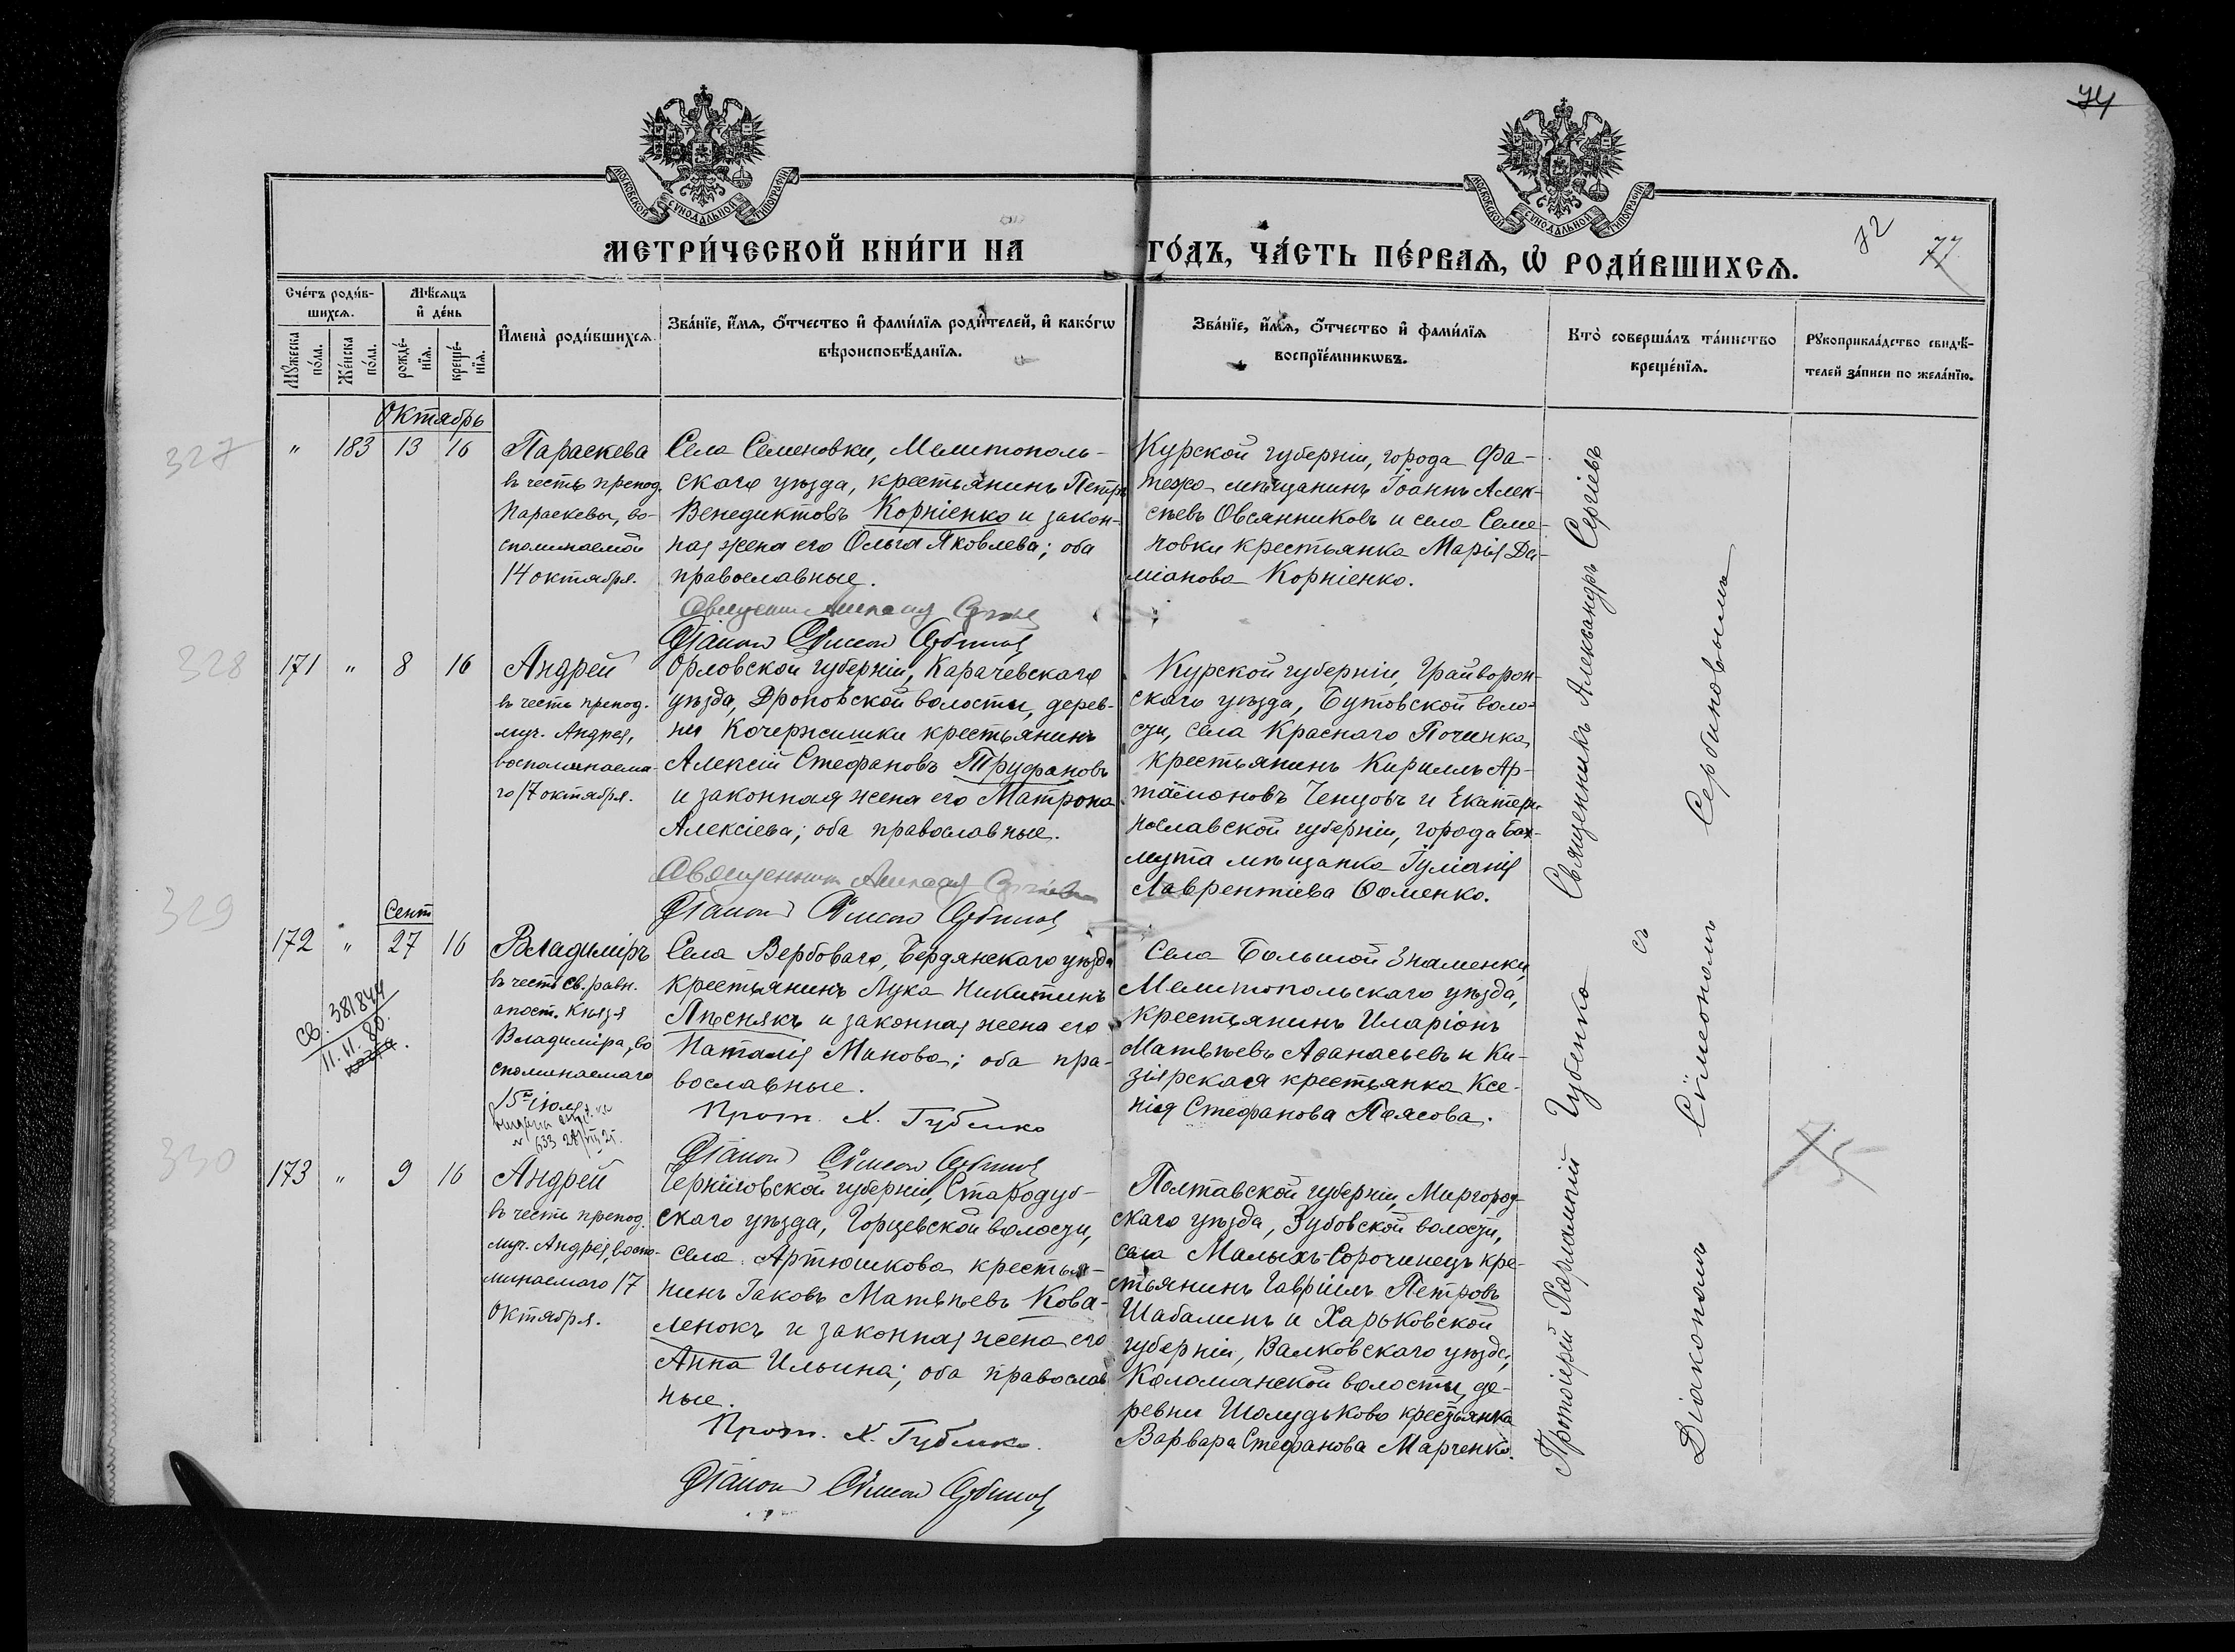 74
МОСКОВСКОЙ СѴНОДАЛЬНОЙ ТИПОГРАФІИ
МОСКОВСКОЙ СѴНОДАЛЬНОЙ ТИПОГРАФІИ
МЕТРИ́ЧЕСКОЙ КНИ́ГИ НА
ГО́ДЪ, ЧА́СТЬ ПЕ́РВАѦ, Ѡ҆ РОДИ́ВШИХСѦ.
72
77
Сче́тъ роди́в-
шихсѧ.
Мѣ́сѧцъ
и҆ де́нь
Мꙋ́жеска
по́ла.
Же́нска
по́ла.
рожде́-
нїѧ.
креще́-
нїѧ.
И҆мена̀ роди́вшихсѧ
Зва́нїе, и҆́мѧ, ѻ҆́тчество и҆ фами́лїѧ роди́телей, и҆ како́гѡ
вѣроисповѣ́данїѧ.
Зва́нїе, и҆́мѧ, ѻ҆́тчество и҆ фами́лїѧ
воспрїе́мникѡвъ.
Кто̀ соверша́лъ та́инство
креще́нїѧ.
Рꙋкоприкла́дство свидѣ́-
телей за́писи по жела́нїю.
Октябрь
327
" 183 13 16
Параскева
въ честь препод.
Параскевы, во-
споминаемой
14 октября.
Села Семеновки, Мелитополь-
скаго уѣзда, крестьянинъ Петръ
Венедиктовъ Корніенко и закон-
ная жена его Ольга Яковлева; оба
православные.
Діаконъ Сѵмеонъ Сербиновъ
Курской губерніи, города Фа-
тежа мѣщанинъ Іоаннъ Алек-
сѣевъ Овсянниковъ и села Семе-
новки крестьянка Марія Да-
міанова Корніенко.
328
171 " 8 16
Андрей
въ честь препод.
муч. Андрея,
воспоминаема-
го 17 октября.
Орловской губерніи, Карачевскаго
уѣзда, Дроновской волости, дерев-
ни Кочержишки крестьянинъ
Алексій Стефановъ Труфановъ
и законная жена его Матрона
Алексіева; оба православные.
Діаконъ Сѵмеонъ Сербиновъ
Курской губерніи, Грайворон-
скаго уѣзда, Бутовской воло-
сти, села Краснаго Починка
крестьянинъ Кириллъ Ар-
тамоновъ Ченцовъ и Екатери-
нославской губерніи, города Бах-
мута мѣщанка Іуліанія
Лаврентіева Ѳоменко.
329
Сент
172 " 27 16
Владиміръ
въ честь св. равн.
апост. Князя
Владиміра, во
споминаемаго
15го іюля
св. 381844
11.11.80.
Села Вербоваго, Бердянскаго уѣзда
крестьянинъ Лука Никитинъ
Лѣснякъ и законная жена его
Наталія Минова; оба пра-
вославные.
Прот. Х. Губенко
Діаконъ Сѵмеонъ Сербиновъ
Села Большой Знаменки,
Мелитопольскаго уѣзда,
крестьянинъ Иларіонъ
Матвѣевъ Аѳанасьевъ и Ки-
зіярская крестьянка Ксе-
нія Стефанова Поясова.
330
173 " 9 16
Андрей
въ честь препод.
муч. Андрея, воспо-
минаемаго 17
Октября.
Черниговской губерніи, Стародуб-
скаго уѣзда, Горцевской волости,
села Артюшкова крестья-
нинъ Іаковъ Матвѣевъ Кова-
ленокъ и законная жена его
Анна Ильина; оба православ
ные.
Прот. Х. Губенко.
Діаконъ Сѵмеонъ Сербиновъ
Полтавской губерніи, Миргород-
скаго уѣзда, Зубовской волости,
села Малыхъ-Сорочинецъ кре-
стьянинъ Гавріилъ Петровъ
Шабалинъ и Харьковской
губерніи, Валковскаго уѣзда,
Коломакской волости, де-
ревни Шолудьково крестьянка
Варвара Стефанова Марченко.
Протоіерей Харлампій Губенко Священникъ Александръ Сергіевъ
съ
Діакономъ Сѵмеономъ Сербиновымъ
75